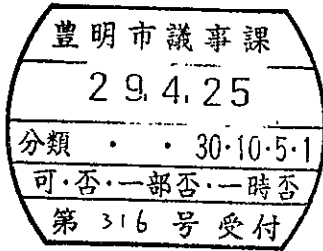 豊明市議事課
29.4.25
分類 ・ ・ 30・10・5・1
可・否・一部否・一時否
第 316 号 受付